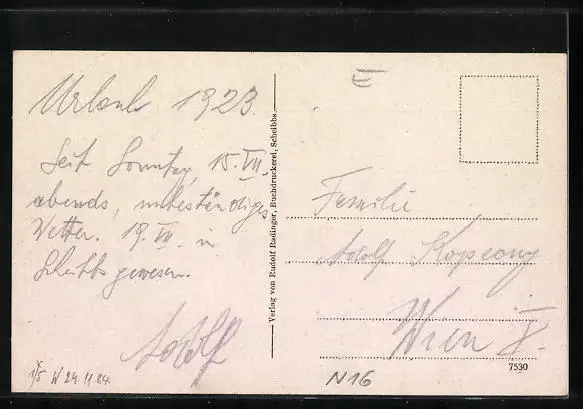 Urlaub 1923.
Seit Sonntag, 15. VII.
abends, unbeständiges
Wetter. 19. VII. in
Scheibbs gewesen.
Adolf
W 29.11.84.
Verlag von Rudolf Radinger, Buchdruckerei, Scheibbs.
E
Familie
Adolf Kopecny
Wien X.
7530
N16